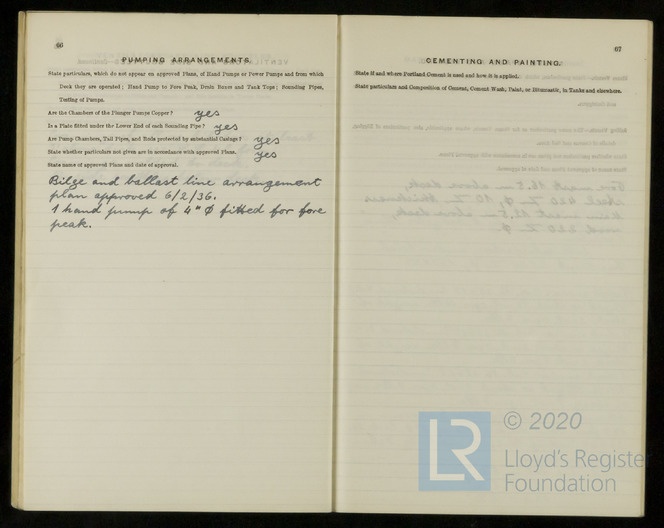 66
PUMPING ARRANGEMENTS.
State particulars, which do not appear on approved Plans, of Hand Pumps or Power Pumps and from which
Deck they are operated; Hand Pump to Fore Peak, Drain Boxes and Tank Tops; Sounding Pipes,
Testing of Pumps.
Are the Chambers of the Plunger Pumps Copper? yes
Is a Plate fitted under the Lower End of each Sounding Pipe? yes
Are Pump Chambers, Tail Pipes, and Rods protected by substantial Casings? yes
State whether particulars not given are in accordance with approved Plans. yes
State name of approved Plans and date of approval.
Bilge and ballast line arrangement
plan approved 6/2/36.
1 hand pump of 4" Ø fitted for fore
peak.
67
CEMENTING AND PAINTING.
State if and where Portland Cement is used and how it is applied.
State particulars and Composition of Cement, Cement Wash, Paint, or Bitumastic, in Tanks and elsewhere.
LR
© 2020
Lloyd's Register
Foundation